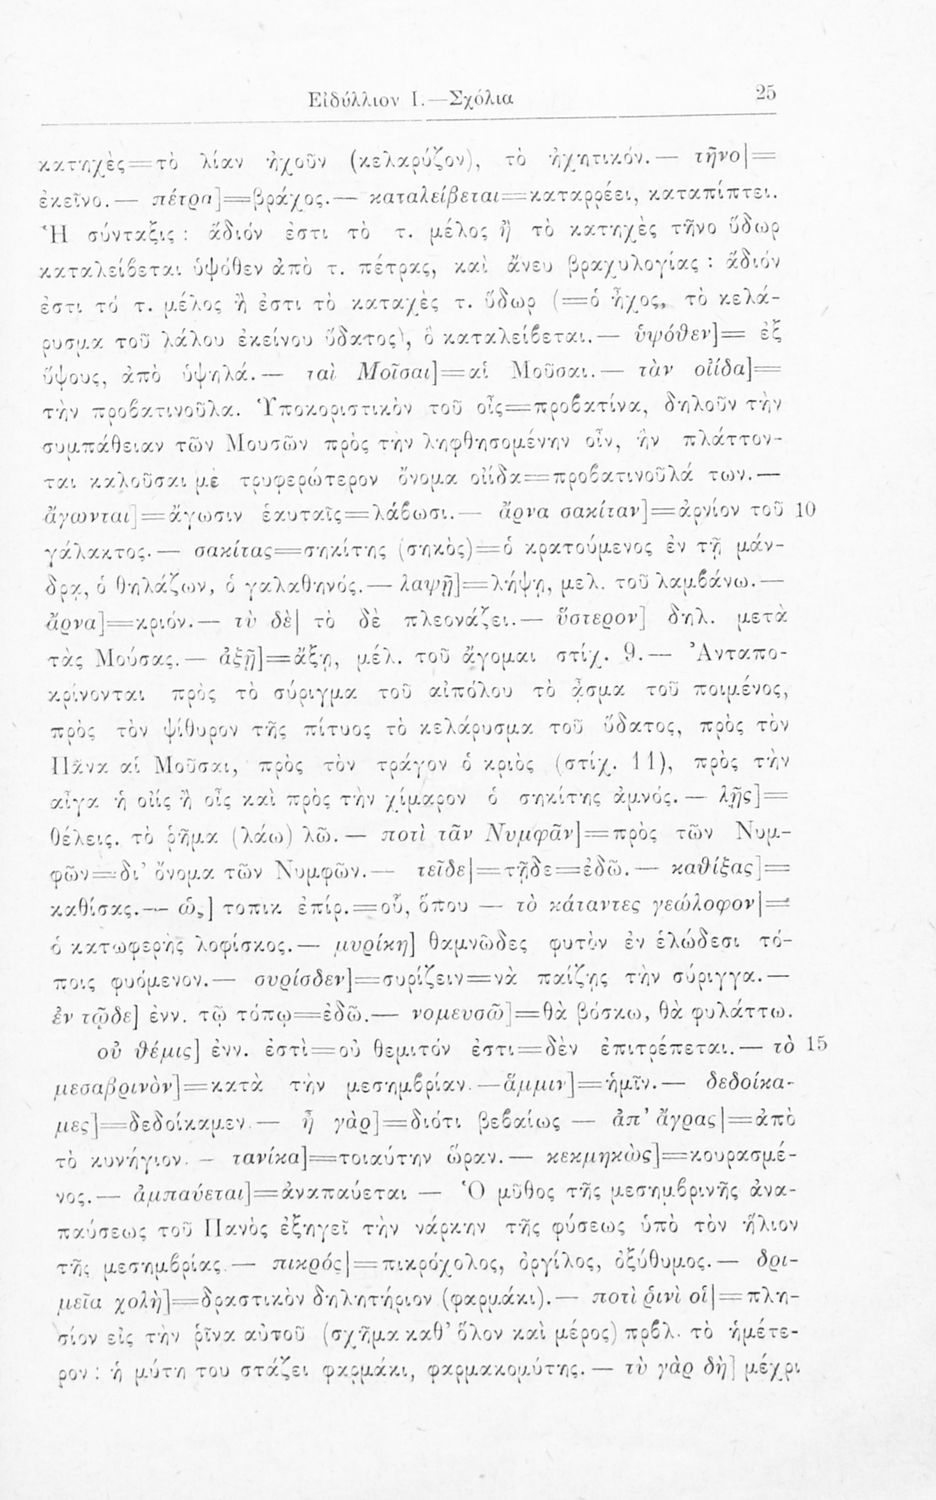 Εἰδύλλιον I.—Σχόλια 25
κατηχὲς=τὸ λίαν ἠχοῦν (κελαρύζον), τὸ ἠχητικόν.— τῆνο]=
ἐκεῖνο.— πέτρα]=βράχος.— καταλείβεται=καταρρέει, καταπίπτει.
Ἡ σύνταξις : ἅδιόν ἐστι τὸ τ. μέλος ἢ τὸ κατηχὲς τῆνο ὕδωρ
καταλείβεται ὑψόθεν ἀπὸ τ. πέτρας, καὶ ἄνευ βραχυλογίας : ἅδιόν
ἐστι τό τ. μέλος ἢ ἐστι τὸ καταχὲς τ. ὕδωρ (=ὁ ἦχος, τὸ κελά-
ρυσμα τοῦ λάλου ἐκείνου ὕδατος), ὃ καταλείβεται.— ὑψόθεν]= ἐξ
ὕψους, ἀπὸ ὑψηλά.— ταὶ Μοῖσαι]=αἱ Μοῦσαι.— τὰν οἰίδα]=
τὴν προβατινοῦλα. Ὑποκοριστικὸν τοῦ οἶς=προβατίνα, δηλοῦν τὴν
συμπάθειαν τῶν Μουσῶν πρὸς τὴν ληφθησομένην οἶν, ἣν πλάττον-
ται καλοῦσαι μὲ τρυφερώτερον ὄνομα οἰίδα=προβατινοῦλά των.—
ἄγωνται]=ἄγωσιν ἑαυταῖς=λάβωσι.— ἄρνα σακίταν]=ἀρνίον τοῦ 10
γάλακτος.— σακίτας=σηκίτης (σηκὸς)=ὁ κρατούμενος ἐν τῇ μάν-
δρᾳ, ὁ θηλάζων, ὁ γαλαθηνός.— λαψῇ]=λήψῃ, μελ. τοῦ λαμβάνω.—
ἄρνα]=κριόν.— τὺ δὲ] τὸ δὲ πλεονάζει.— ὕστερον] δηλ. μετὰ
τὰς Μούσας.— ἀξῇ]=ἄξῃ, μέλ. τοῦ ἄγομαι στίχ. 9.— Ἀνταπο-
κρίνονται πρὸς τὸ σύριγμα τοῦ αἰπόλου τὸ ᾆσμα τοῦ ποιμένος,
πρὸς τὸν ψίθυρον τῆς πίτυος τὸ κελάρυσμα τοῦ ὕδατος, πρὸς τὸν
Πᾶνα αἱ Μοῦσαι, πρὸς τὸν τράγον ὁ κριὸς (στίχ. 11), πρὸς τὴν
αἶγα ἡ οἰὶς ἢ οἶς καὶ πρὸς τὴν χίμαρον ὁ σηκίτης ἀμνός.— λῇς]=
θέλεις. τὸ ῥῆμα (λάω) λῶ.— ποτὶ τᾶν Νυμφᾶν]=πρὸς τῶν Νυμ-
φῶν=δι' ὄνομα τῶν Νυμφῶν.— τεῖδε]=τῇδε=ἐδῶ.— καθίξας]=
καθίσας.— ὡς] τοπικ ἐπίρ.=οὗ, ὅπου — τὸ κάταντες γεώλοφον]=
ὁ κατωφερὴς λοφίσκος.— μυρίκη] θαμνῶδες φυτὸν ἐν ἑλώδεσι τό-
ποις φυόμενον.— συρίσδεν]=συρίζειν=νὰ παίζῃς τὴν σύριγγα.—
ἐν τῷδε] ἐνν. τῷ τόπῳ=ἐδῶ.— νομευσῶ]=θὰ βόσκω, θὰ φυλάττω.
οὐ θέμις] ἐνν. ἐστὶ=οὐ θεμιτόν ἐστι=δὲν ἐπιτρέπεται.— τὸ 15
μεσαβρινὸν]=κατὰ τὴν μεσημβρίαν.—ἄμμιν]=ἡμῖν.— δεδοίκα-
μες]=δεδοίκαμεν.— ἦ γὰρ]=διότι βεβαίως — ἀπ' ἄγρας]=ἀπὸ
τὸ κυνήγιον. — τανίκα]=τοιαύτην ὥραν.— κεκμηκὼς]=κουρασμέ-
νος.— ἀμπαύεται]=ἀναπαύεται — Ὁ μῦθος τῆς μεσημβρινῆς ἀνα-
παύσεως τοῦ Πανὸς ἐξηγεῖ τὴν νάρκην τῆς φύσεως ὑπὸ τὸν ἥλιον
τῆς μεσημβρίας.— πικρός]=πικρόχολος, ὀργίλος, ὀξύθυμος.— δρι-
μεῖα χολὴ]=δραστικὸν δηλητήριον (φαρμάκι).— ποτὶ ῥινὶ οἱ]=πλη-
σίον εἰς τὴν ῥῖνα αὐτοῦ (σχῆμα καθ' ὅλον καὶ μέρος) πρβλ. τὸ ἡμέτε-
ρον : ἡ μύτη του στάζει φαρμάκι, φαρμακομύτης.— τὺ γὰρ δὴ] μέχρι